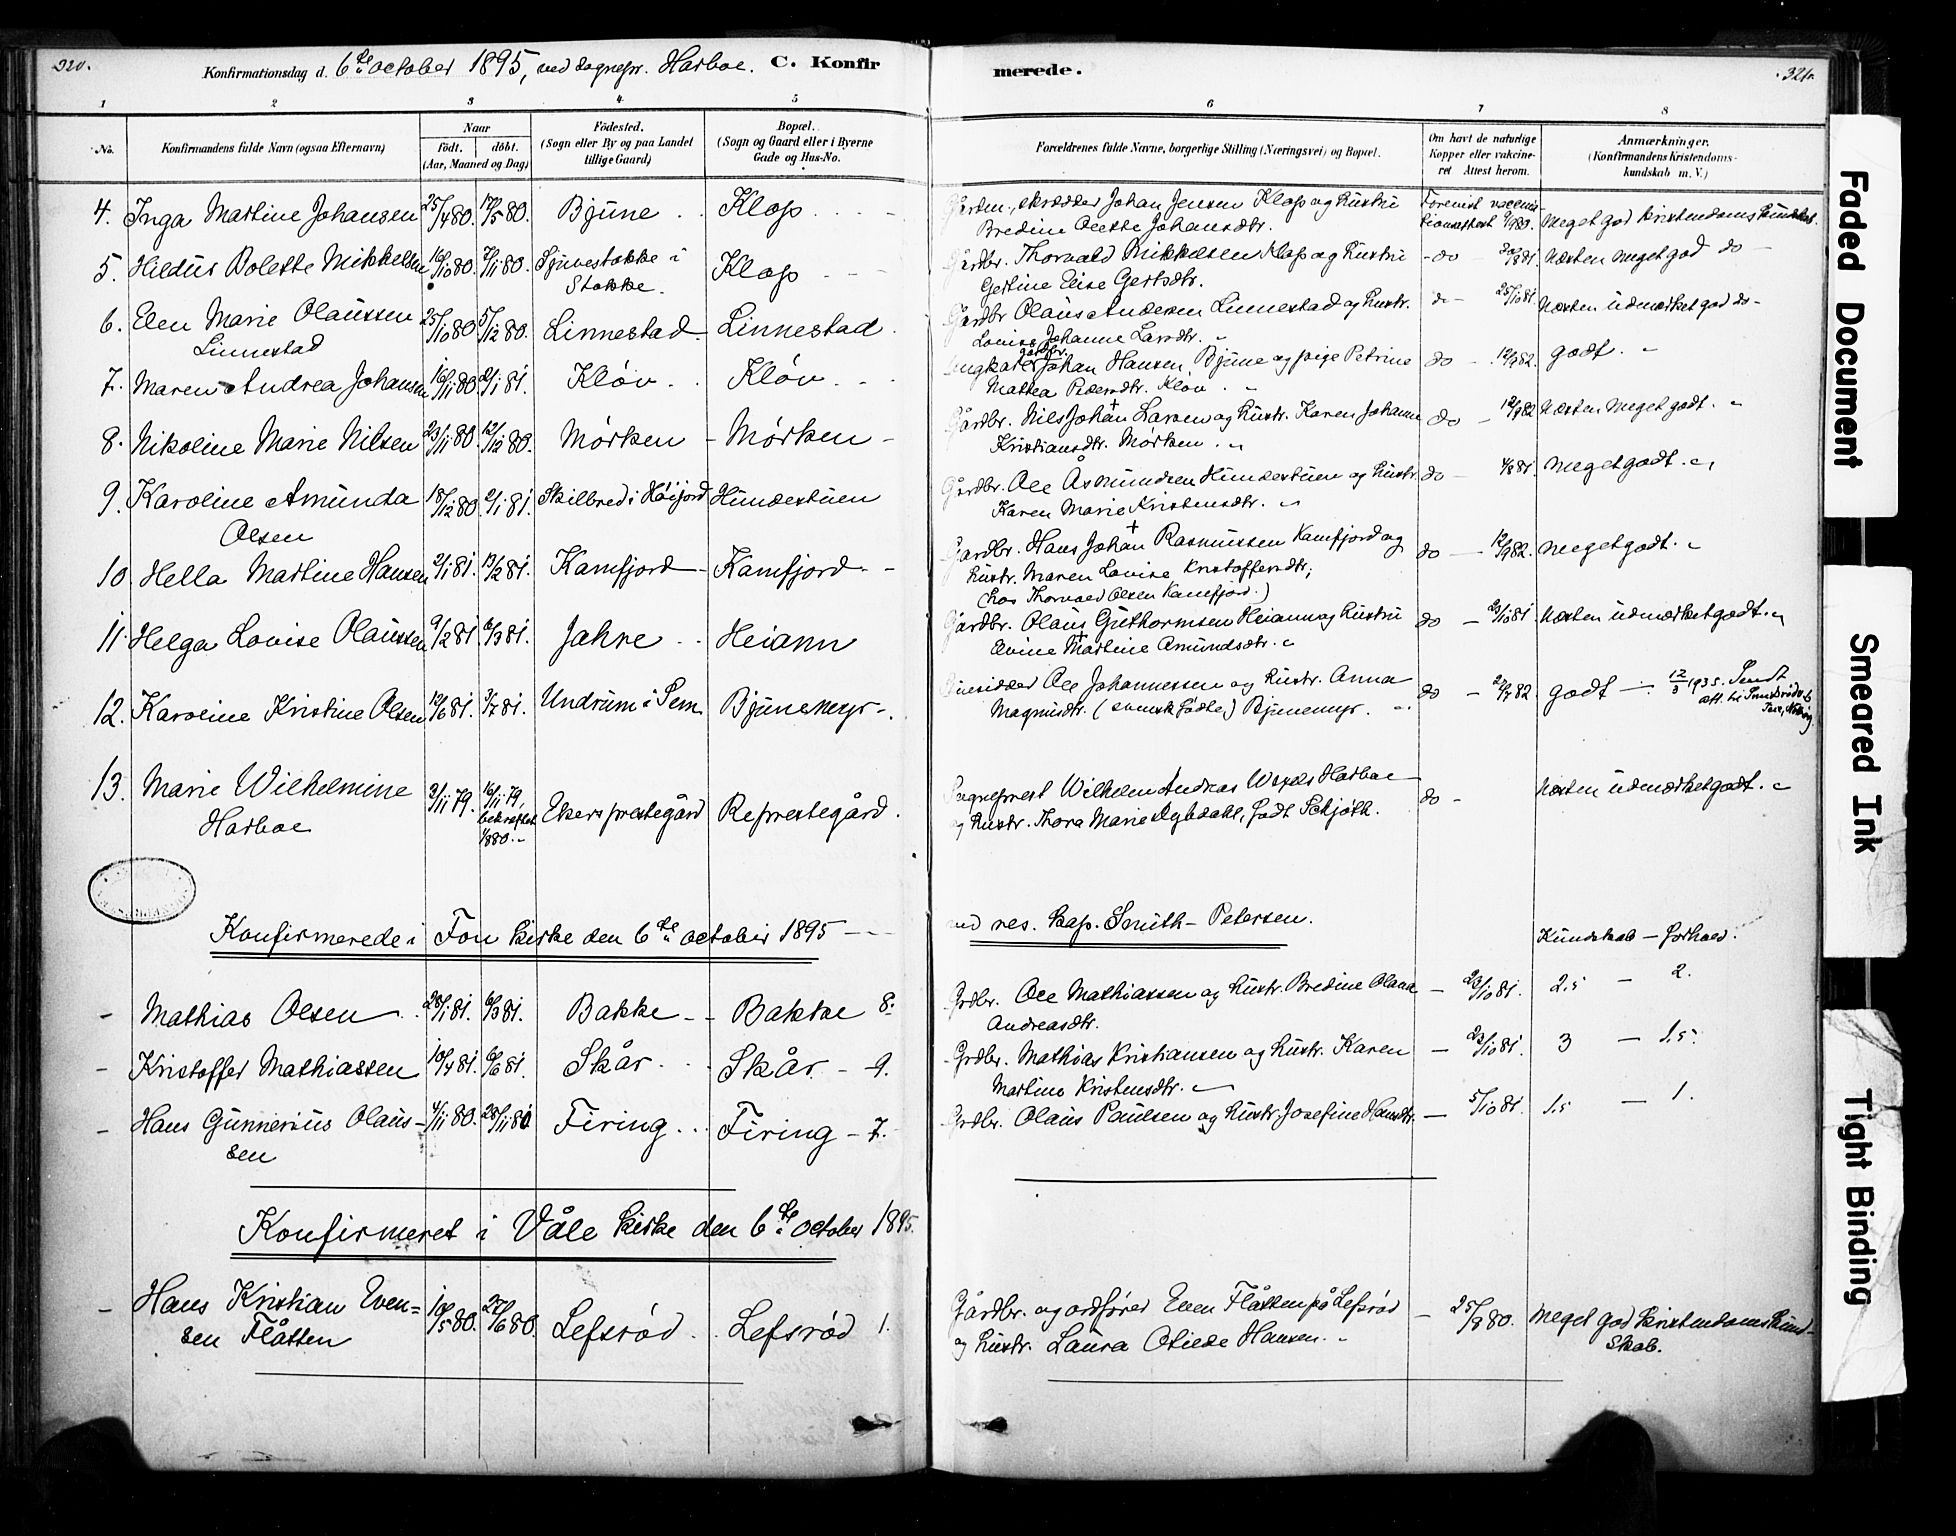 320.
Konfirmationsdag d. 6te october 1895, ved sognepr. Harboe. C. Konfir
merede.
321.
1 2 3 4. 5
6 7 8
No.
Konfirmandens fulde Navn (ogsaa Efternavn)
Naar
Födt. döbt.
(Aar, Maaned og Dag)
Födested.
(Sogn eller By og paa Landet
tillige Gaard)
Bopæl.
(Sogn og Gaard eller i Byerne
Gade og Hus-No.
Forældrenes fulde Navne, borgerlige Stilling (Næringsvei) og Bopæl.
Om havt de naturlige
Kopper eller vakcine-
ret Attest herom.
Anmærkninger.
(Konfirmandens Kristendoms-
kundskab m. V.)
4. Inga Martine Johansen 25/4 80. 17/5 80. Bjune . . Klop . . . -
Johan Jensen Klop og hustru
Bredine Olette Johansdtr. Meget god kristendomskundskab.
5. Hildus Bolette Mikkelsen 16/10 80. 7/11 80. i
Stokke. Klop - - -
Gårdbr. Thorvald Mikkelsen Klop og hustru - do - Næsten meget god do -
Gertine Elise Gertsdtr.
6. Elen Marie Olaussen 25/10 80 5/12 80. Linnestad - Linnestad .
Linnestad
Gårdbr. Olaus Andersen Linnestad og hustr. do - 25/10 81. Næsten udmærket god do -
Lovise Johanne Larsdtr. "
7. Maren Andrea Johansen 16/11 80 2/1 81. Kløv . . Kløv . . .
Ungkarl gårdbr. Johan Hansen Bjune og pige Petrine do - 12/9 82. godt. "
Mathea Pedersdtr. Kløv "
8. Nikoline Marie Nilsen 23/11 80. 12/12 80. Mørken - Mørken -
Gårdbr. Nils Johan Larsen og hustr. Karen Johanne do - 12/9 82 Næsten meget godt. "
Kristiansdtr. Mørken . "
9. Karoline Amunda 18/12 80 2/1 81. Skilbred i Høijord Hundestuen
Olsen
Gårdbr. Ole Åsmundsen Hundestuen og hustr. do - Meget godt. "
Karen Marie Kristensdtr. "
10 Hella Martine Hansen 2/1 81. 13/2 81. Kamfjord - Kamfjord - -
Gårdbr. Hans Johan Rasmussen Kamfjord og do - 12/9 82. Meget godt. "
hustr. Maren Lovise Kristoffersdtr,
(hos Thorvald Olsen Kamfjord.)
11. Helga Lovise Olaussen 9/2 81 6/3 81. Jahre . . Heiann
Gårdbr. Olaus Guthormsen Heiann og hustru do - 23/10 81 Næsten udmærket godt. "
Martine Amundsdtr. "
12. Karoline Kristine Olsen 12/6 81. 3/7 81. Undrum i Sem Bjunemyr - .
Ole Johannessen og hustr. Anna do - godt - 12/3 1935. Sendt
Magnusdtr. (svensk fødte) Bjunemyr. "
13. Marie Wilhelmine 3/11 79. 16/11 79, Ekers prestegård Represtegård.
Harboe bekræftet 1/8 80. "
Sogneprest Wilhelm Andreas Wexels Harboe do - Næsten udmærket godt. "
og hustr. Thora Marie Agledahl, født Schjøth.
Konfirmerede i Fon kirke den 6te october 1895 - - -
ved res. kap. Smith - Petersen.
Kundskab - forhold.
- Mathias Olsen . 28/1 81. 6/3 81. Bakke - - Bakke 8.
Grdbr. Ole Mathiassen og hustr. Bredine Olava - 23/10 81. 2.5 - 2.
Andreasdtr.
- Kristoffer Mathiassen 10/4 81. 6/6 81. Skår . . Skår - 9.
Grdbr. Mathias Kristiansen og hustr. Karen - 23/10 81. 3 - 1.5
Martine Kristensdtr. "
- Hans Gunnerius Olaus- 4/11 80. 28/11 80 Firing . . Firing - 7.
sen
Grdbr. Olaus Paulsen og hustr. Josefine Hansdtr. - 5/10 81. 1.5 - 1.
Konfirmeret i Våle kirke den 6te october 1895.
- Hans Kristian Even= 10/5 80. 27/6 80. Lefsrød . . Lefsrød 1.
sen Flåtten
Gårdbr. og ordfører Even Flåtten på Lefsrød - 25/9 80. Meget god kristendomskund-
og hustr. Laura Otilde Hansen. " skab.
Faded Document
Smeared Ink
Tight Binding